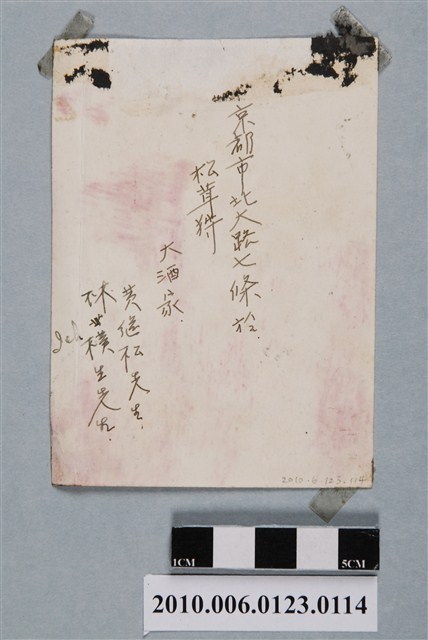 京都市北大路七條於.
松茸狩
大酒家.
黄継松先生.
林 樸生先生.
2010.6.123.114
1CM 5CM
2010.006.0123.0114